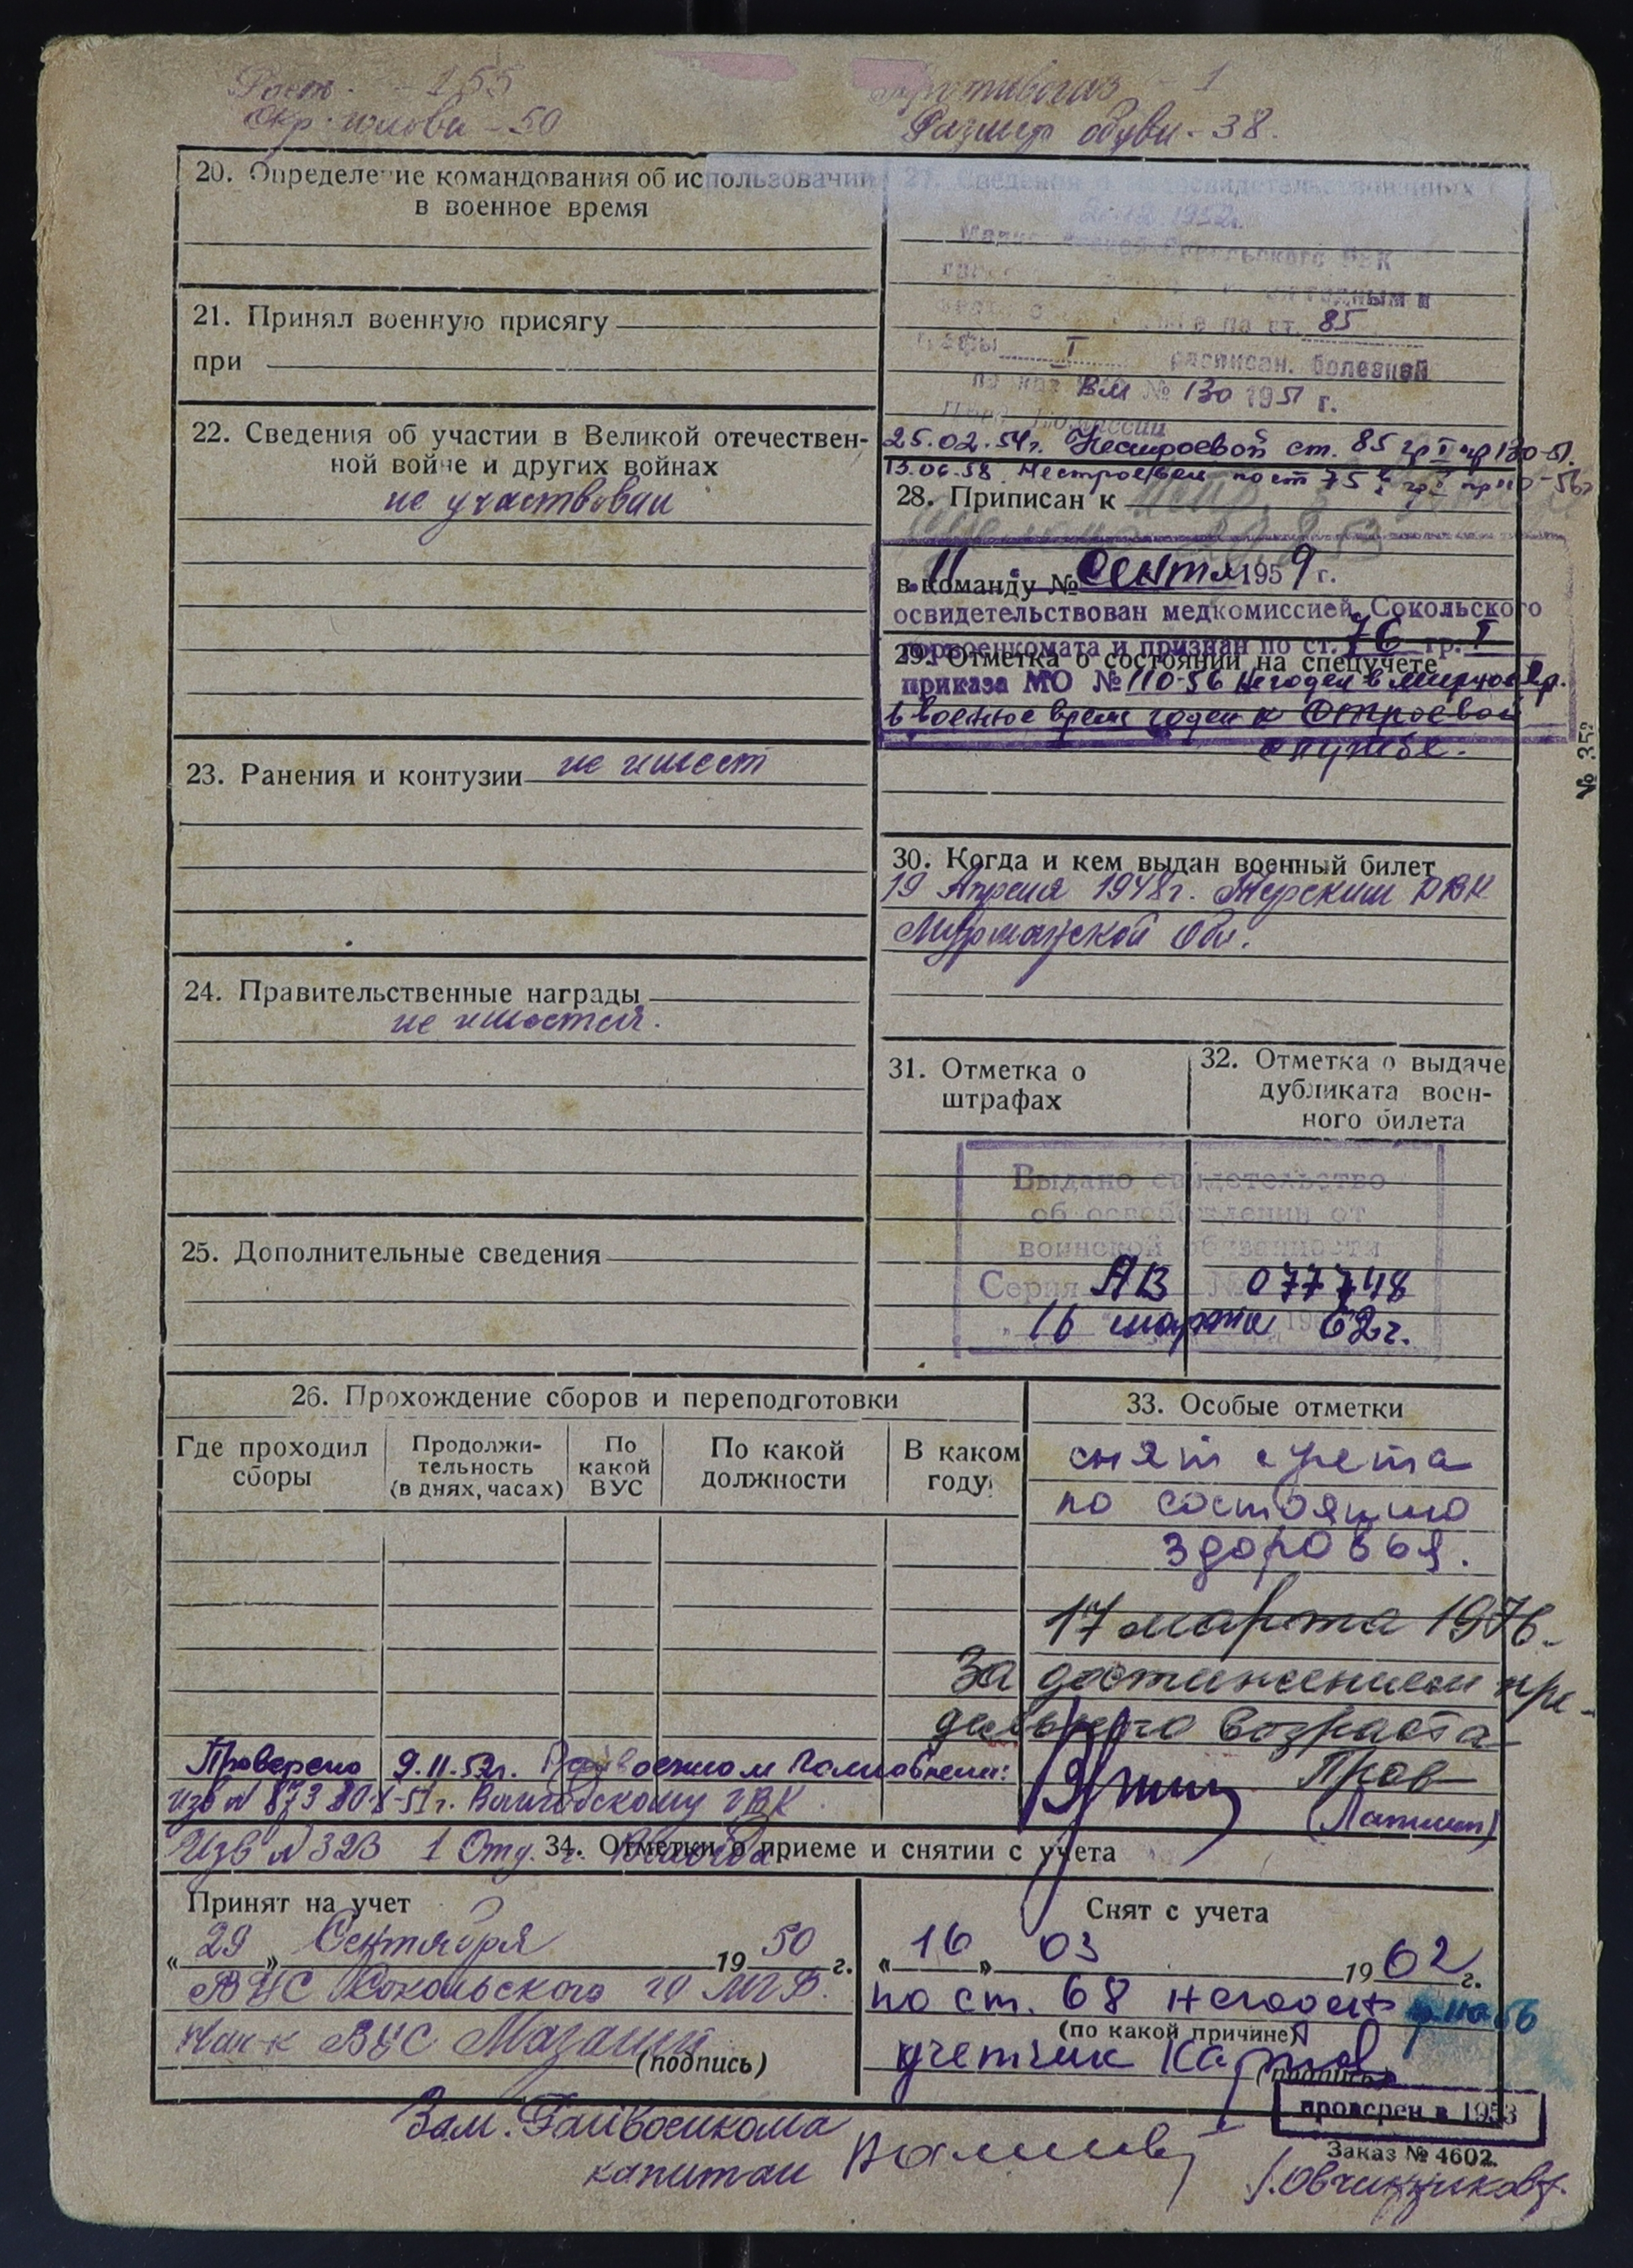 Рост - 155
Окр. головы - 50
Противогаз - 1
Размер обуви - 38.
20. Определение командования об использовании
в военное время
21. Принял военную присягу
при
22. Сведения об участии в Великой отечествен-
ной войне и других войнах
не участвовал
23. Ранения и контузии не имеет
24. Правительственные награды
не имеются.
25. Дополнительные сведения
27. Сведения
1952г.
Сокольского РВК
по ст. 85
графы I расписан. болезней
ВМ № 130 1951 г.
25.02.54г. Нестроевой ст. 85 гр I пр 130-51.
13.06.58. Нестроевой по ст 75
28. Приписан к
в команду №
11 Сентя 1959 г.
освидетельствован медкомиссией Сокольского
горвоенкомата и признан по ст. 76 гр. I
29. Отметка о состоянии на спецучете
приказа МО № 110-56 Не годен в мирное вр.
в военное время годен к строевой
службе.
№ 35
30. Когда и кем выдан военный билет
19 Апреля 1948г. Терским РВК
Мурманской обл.
31. Отметка о
штрафах
32. Отметка о выдаче
дубликата воен-
ного билета
Выдано свидетельство
об освобождении от
воинской обязанности
Серия АВ № 077748
16 марта 1962г.
26. Прохождение сборов и переподготовки
Где проходил
сборы
Продолжи-
тельность
(в днях, часах)
По
какой
ВУС
По какой
должности
В каком
году
33. Особые отметки
снят с учета
по состоянию
здоровья.
17 марта 1976.
За достижением пре-
дельного возраста
Проверено 9.11.52г.
изв № 873 30.8-51г. Вологодскому ГВК
Изв № 323 1 Отд. г. Вологда
34. Отметки о приеме и снятии с учета
Принят на учет
„29„ Сентября 1950 г.
ВУС Сокольского го МГБ.
Нач-к ВУС
(подпись)
Снят с учета
„16„ 03 1962 г.
по ст. 68 негоден пр. 110-56
(по какой причине)
учетчик
(подпись)
проверен в 1953
Заказ № 4602.
Зам. Райвоенкома
капитан
Овчинников